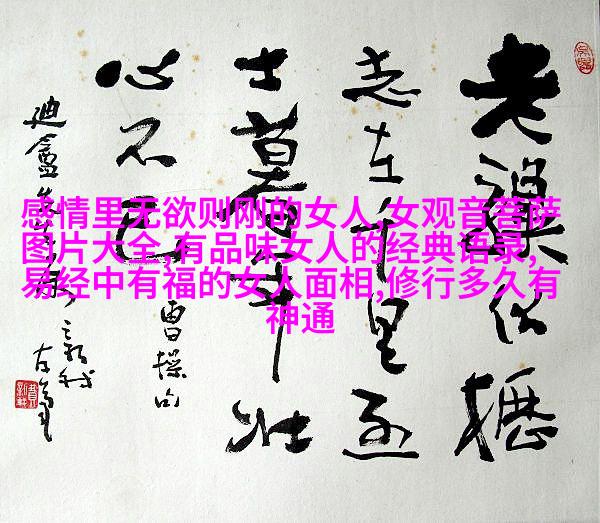 老驥伏櫪
志在千里烈
士暮年壮
心不已
曹操句
感情里无欲则刚的女人,女观音菩萨
图片大全,有品味女人的经典语录,
易经中有福的女人面相,修行多久有
神通